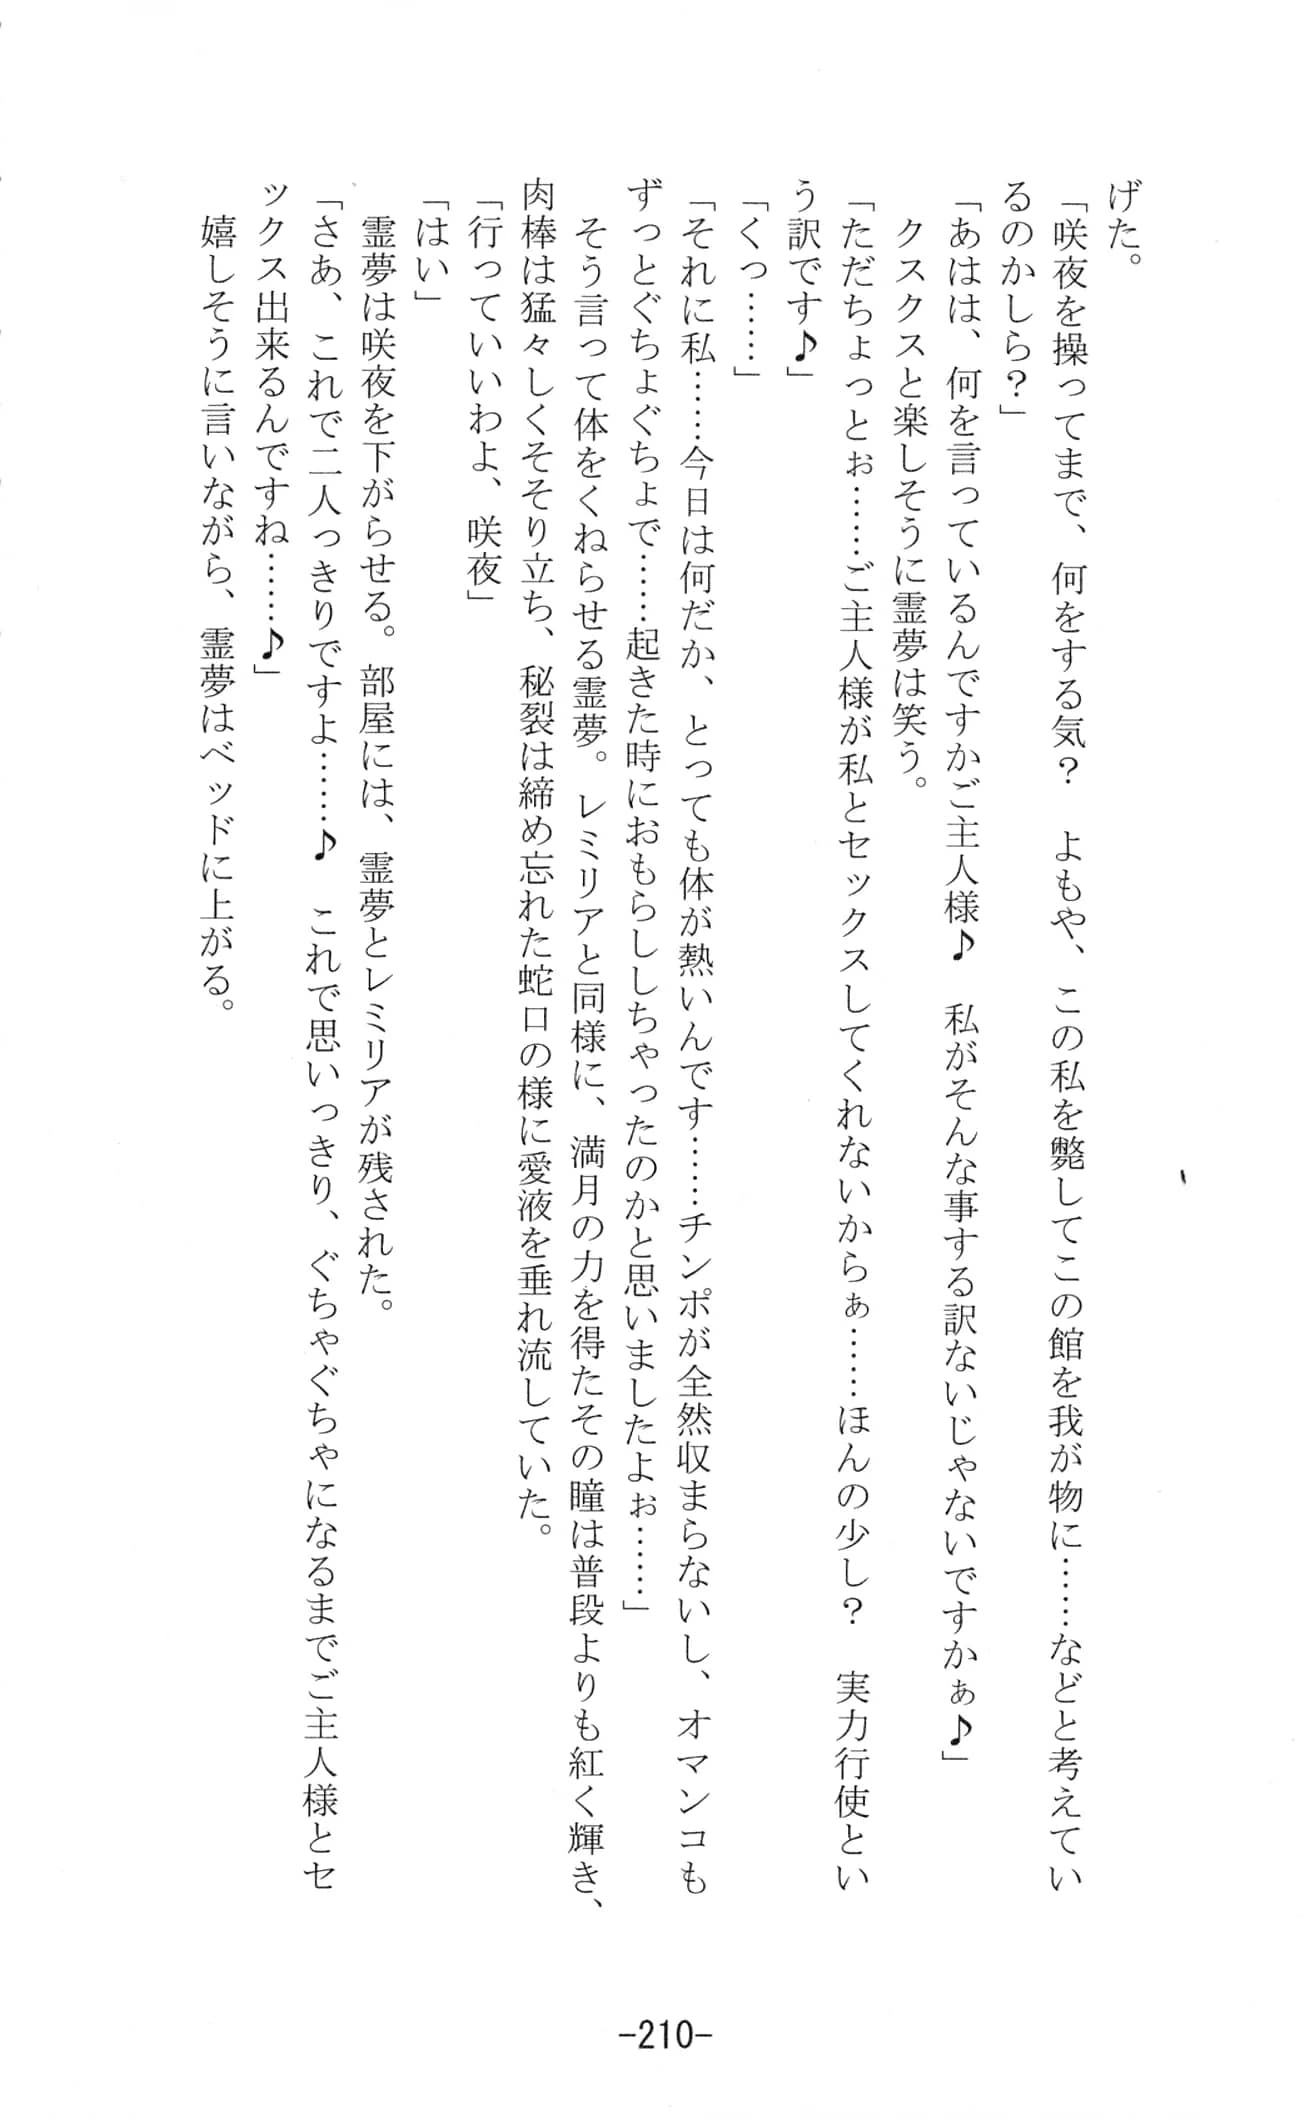 げた。
「咲夜を操ってまで、何をする気？　よもや、この私を斃してこの館を我が物に……などと考えてい
るのかしら？」
「あはは、何を言っているんですかご主人様♪　私がそんな事する訳ないじゃないですかぁ♪」
クスクスと楽しそうに霊夢は笑う。
「ただちょっとぉ……ご主人様が私とセックスしてくれないからぁ……ほんの少し？　実力行使とい
う訳です♪」
「くっ……」
「それに私……今日は何だか、とっても体が熱いんです……チンポが全然収まらないし、オマンコも
ずっとぐちょぐちょで……起きた時におもらししちゃったのかと思いましたよぉ……」
そう言って体をくねらせる霊夢。レミリアと同様に、満月の力を得たその瞳は普段よりも紅く輝き、
肉棒は猛々しくそそり立ち、秘裂は締め忘れた蛇口の様に愛液を垂れ流していた。
「行っていいわよ、咲夜」
「はい」
霊夢は咲夜を下がらせる。部屋には、霊夢とレミリアが残された。
「さあ、これで二人っきりですよ……♪　これで思いっきり、ぐちゃぐちゃになるまでご主人様とセ
ックス出来るんですね……♪」
嬉しそうに言いながら、霊夢はベッドに上がる。
-210-